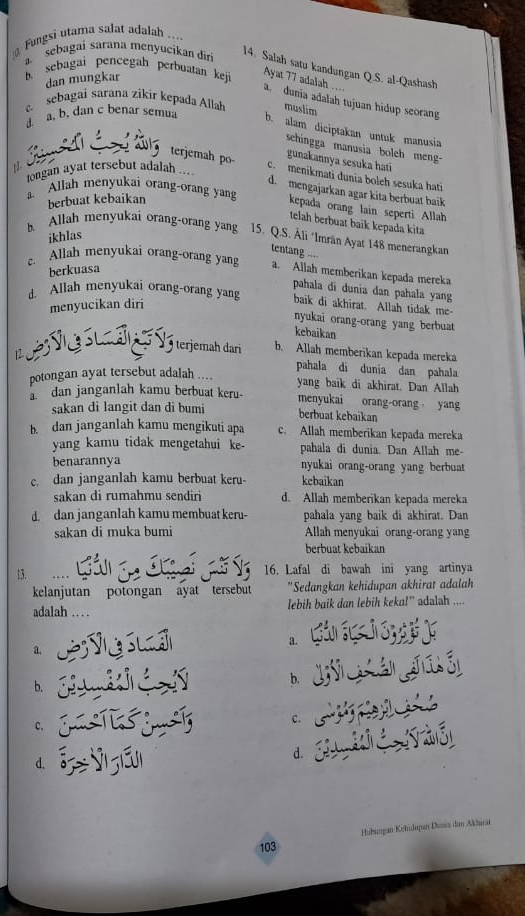 10. Fungsi utama salat adalah ....
a. sebagai sarana menyucikan diri
b. sebagai pencegah perbuatan keji
dan mungkar
c. sebagai sarana zikir kepada Allah
d. a, b, dan c benar semua
11. وَاللّٰهُ يُحِبُّ الْمُحْسِنِيْنَ terjemah po-
tongan ayat tersebut adalah ....
a. Allah menyukai orang-orang yang
berbuat kebaikan
b. Allah menyukai orang-orang yang
ikhlas
c. Allah menyukai orang-orang yang
berkuasa
d. Allah menyukai orang-orang yang
menyucikan diri
12. وَلَا تَبْغِ الْفَسَادَ فِى الْاَرْضِ terjemah dari
potongan ayat tersebut adalah ....
a. dan janganlah kamu berbuat keru-
sakan di langit dan di bumi
b. dan janganlah kamu mengikuti apa
yang kamu tidak mengetahui ke-
benarannya
c. dan janganlah kamu berbuat keru-
sakan di rumahmu sendiri
d. dan janganlah kamu membuat keru-
sakan di muka bumi
13. .... وَلَا تَنْسَ نَصِيْبَكَ مِنَ الدُّنْيَا
kelanjutan potongan ayat tersebut
adalah ....
a. الْفَسَادَ فِى الْاَرْضِ
b. لَا يُحِبُّ الْمُفْسِدِيْنَ
c. وَاَحْسِنْ كَمَآ اَحْسَنَ
d. الدَّارَ الْاٰخِرَةَ
14. Salah satu kandungan Q.S. al-Qashash
Ayat 77 adalah ....
a. dunia adalah tujuan hidup seorang
muslim
b. alam diciptakan untuk manusia
sehingga manusia boleh meng-
gunakannya sesuka hati
c. menikmati dunia boleh sesuka hati
d. mengajarkan agar kita berbuat baik
kepada orang lain seperti Allah
telah berbuat baik kepada kita
15. Q.S. Āli ‘Imrān Ayat 148 menerangkan
tentang ....
a. Allah memberikan kepada mereka
pahala di dunia dan pahala yang
baik di akhirat. Allah tidak me-
nyukai orang-orang yang berbuat
kebaikan
b. Allah memberikan kepada mereka
pahala di dunia dan pahala
yang baik di akhirat. Dan Allah
menyukai orang-orang yang
berbuat kebaikan
c. Allah memberikan kepada mereka
pahala di dunia. Dan Allah me-
nyukai orang-orang yang berbuat
kebaikan
d. Allah memberikan kepada mereka
pahala yang baik di akhirat. Dan
Allah menyukai orang-orang yang
berbuat kebaikan
16. Lafal di bawah ini yang artinya
"Sedangkan kehidupan akhirat adalah
lebih baik dan lebih kekal" adalah ....
a. بَلْ تُؤْثِرُوْنَ الْحَيٰوةَ الدُّنْيَا
b. اِنَّ هٰذَا لَفِى الصُّحُفِ الْاُوْلٰى
c. صُحُفِ اِبْرٰهِيْمَ وَمُوْسٰى
d. اِنَّ اللّٰهَ لَا يُحِبُّ الْمُفْسِدِيْنَ
Hubungan Kehidupan Dunia dan Akhirat
103